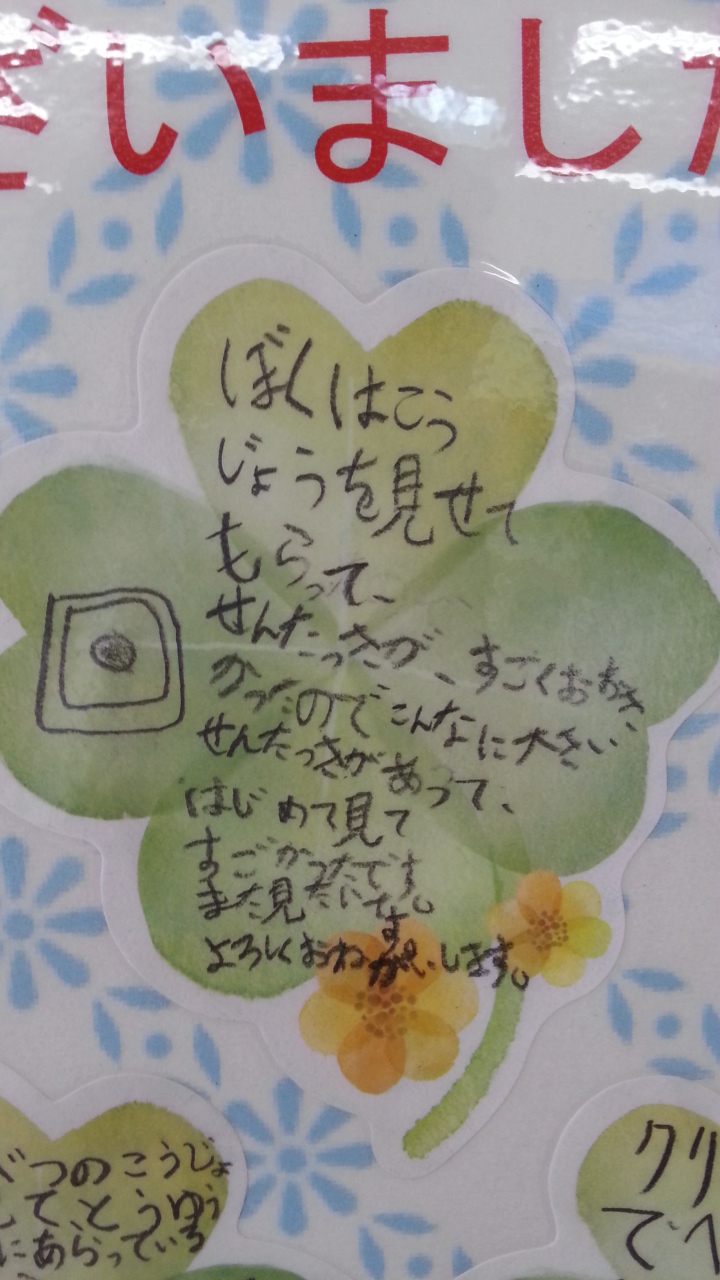 ざいました
ぼくはこう
じょうを見せて
もらって、
せんたっきが、すごくおおき
かったのでこんなに大きい
せんたっきがあって、
はじめて見て
すごかったです。
また見たいです。
よろしくおねがいします。
べつのこうじょ
して、とうゆう
にあらっている
クリ
で